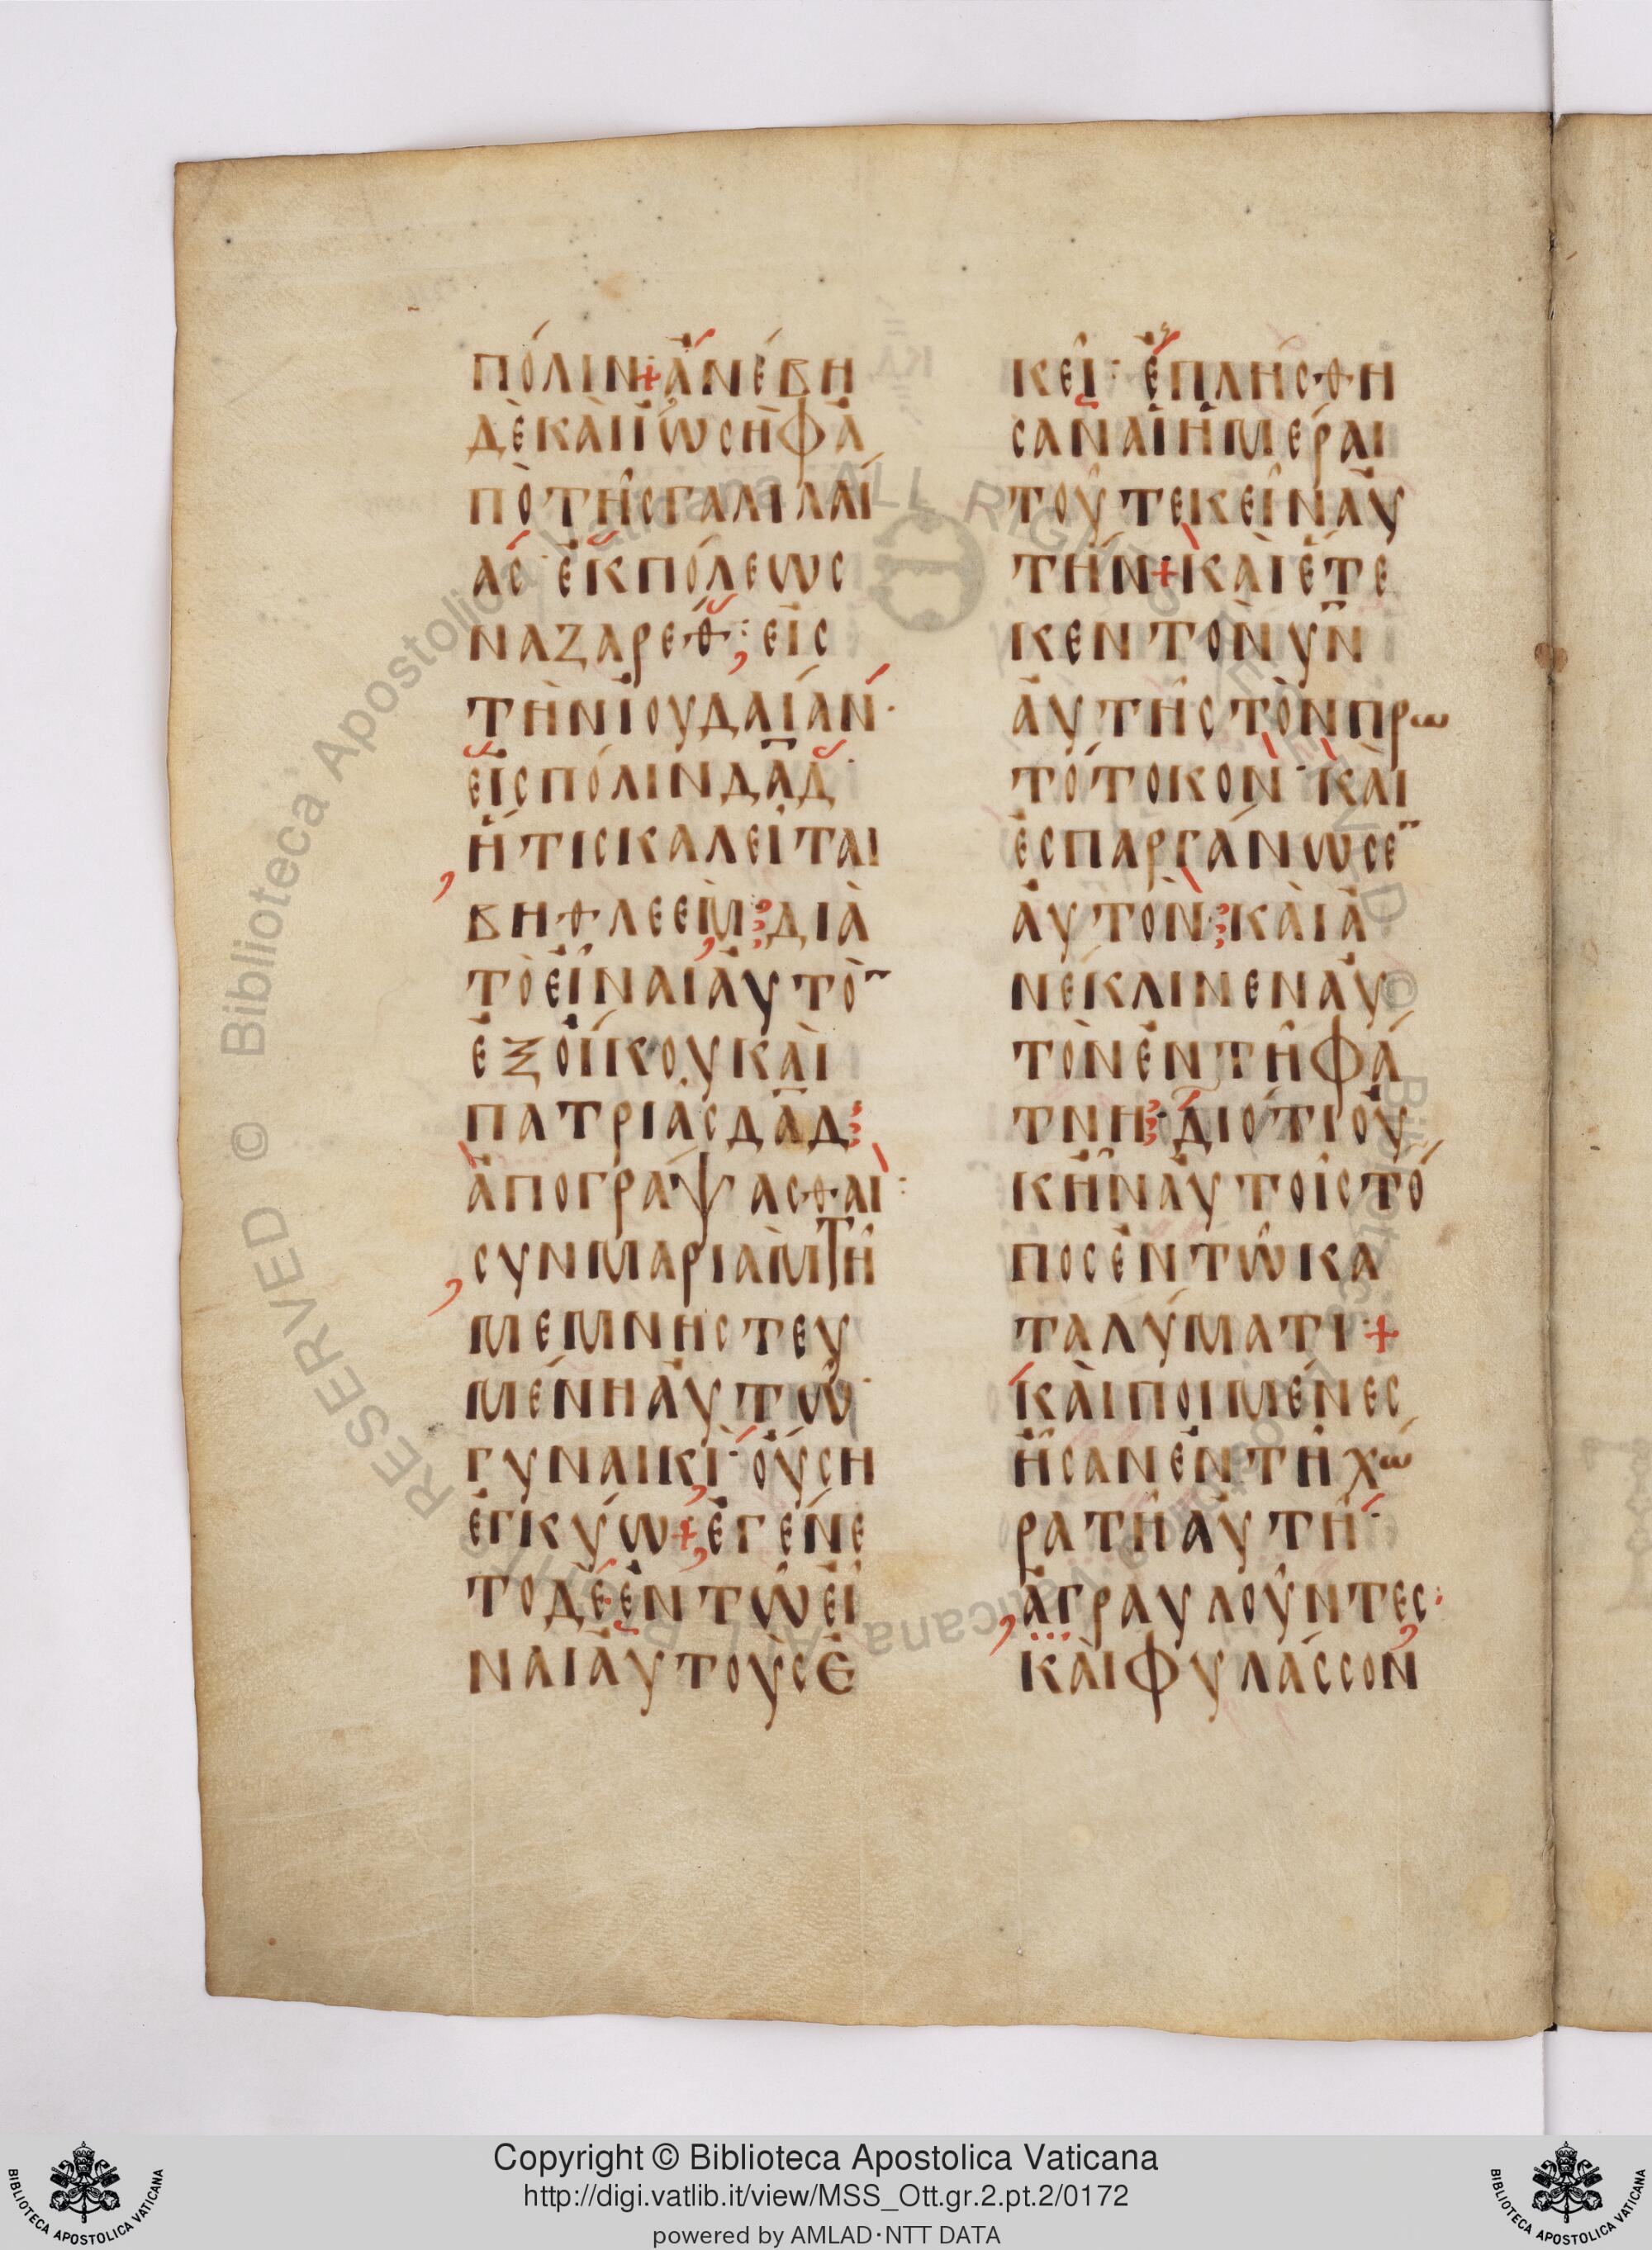 ΠΌΛΙΝ + ἈΝΈΒΗ
ΔῈΚΑῚἸΩΣῊΦἈ
ΠῸΤΗ͂ΣΓΑΛΙΛΑΊ
ΑΣ· ἘΚΠΌΛΕΩΣ
ΝΑΖΑΡΈΘ· ΕἸΣ
ΤῊΝἸΟΥΔΑΊΑΝ·
ΕἸΣΠΌΛΙΝΔΑ̅Δ·
ἭΤΙΣΚΑΛΕΙ͂ΤΑΙ
ΒΗΘΛΕΕῚΜ· ΔΙᾺ
ΤῸΕἾΝΑΙἈΥΤῸ¯
ἘΞὌΙΚΟΥΚΑῚ
ΠΑΤΡΙΑ͂ΣΔΑ̅Δ·
ἈΠΟΓΡΆΨΑΣΘΑΙ·
ΣΥΝΜΑΡΙᾺΜΤΗ͂
ΜΕΜΝΗΣΤΕΥ
ΜΈΝΗἈΥΤΩ͂·
ΓΥΝΑΙΚῚ· ὌΥΣΗ
ἘΓΚΎΩ + ἘΓΈΝΕ
ΤΟΔῈἘΝΤΩ͂ΕἾ
ΝΑΙἈΥΤΟῪΣἘ
ΚΕΙ͂· ἘΠΛΉΣΘΗ
ΣΑΝΑἹἩΜΈΡΑΙ
ΤΟΥ͂ΤΕΚΕΙ͂ΝἈΥ
ΤΉΝ + ΚΑῚἜΤΕ
ΚΕΝΤῸΝΥ̅Ν
ἈΥΤΗ͂ΣΤῸΝΠΡΩ
ΤΌΤΟΚΟΝ· ΚΑῚ
ἘΣΠΑΡΓΆΝΩΣΕ¯
ἈΥΤῸΝ· ΚΑῚἈ
ΝΈΚΛΙΝΕΝἈΥ
ΤῸΝἘΝΤΗ͂ΦΆ
ΤΝΗ· ΔΙΌΤΙΟὙ
ΚἮΝἈΥΤΟΙ͂ΣΤΌ
ΠΟΣἘΝΤΩ͂ΚΑ
ΤΑΛΎΜΑΤΙ· +
ΚΑῚΠΟΙΜΈΝΕΣ
ἮΣΑΝἘΝΤΗ͂ΧΏ
ΡΑΤΗ͂ἈΥΤΗ͂·
ἈΓΡΑΥΛΟΥ͂ΝΤΕΣ·
ΚΑῚΦΥΛΆΣΣΟΝ
Bibliotea Apostolica Vaticana ALL RIGHTS RESERVED ©
Copyright © Biblioteca Apostolica Vaticana
http://digi.vatlib.it/view/MSS_Ott.gr.2.pt.2/0172
powered by AMLAD·NTT DATA
BIBLIOTECA APOSTOLICA VATICANA
BIBLIOTECA APOSTOLICA VATICANA